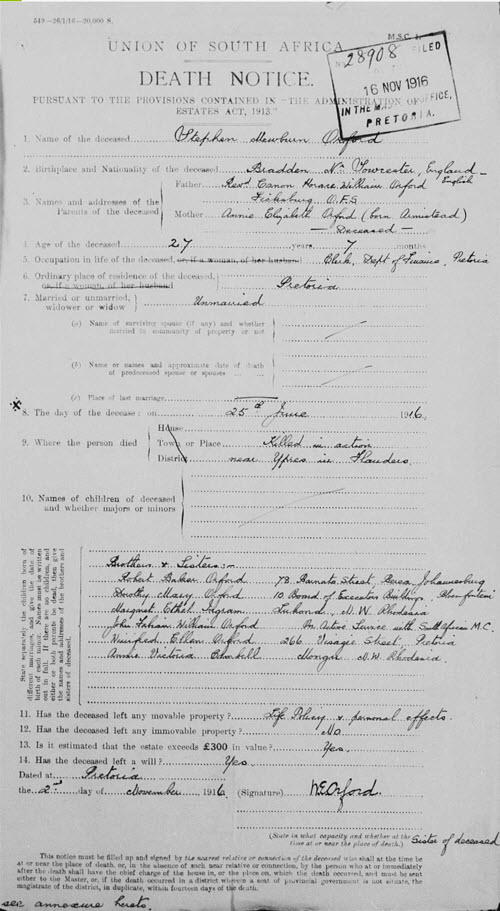 549—26/1/16—20,000 S.
M.S.C. 1.
UNION OF SOUTH AFRICA
No 28908 FILED
16 NOV 1916
IN THE MASTER'S OFFICE,
PRETORIA.
DEATH NOTICE.
PURSUANT TO THE PROVISIONS CONTAINED IN "THE ADMINISTRATION OF
ESTATES ACT, 1913."
1. Name of the deceased Stephen Newburn Orford
2. Birthplace and Nationality of the deceased Bradden Nr Towcester, England — English
3. Names and addresses of the Parents of the deceased
Father Revd Canon Horace William Orford
Ficksburg O.F.S.
Mother Annie Elizabeth Orford (born Armistead)
— Deceased —
4. Age of the deceased 27 years 7 months
5. Occupation in life of the deceased, or, if a woman, of her husband Clerk, Dept of Finance, Pretoria
6. Ordinary place of residence of the deceased, or, if a woman, of her husband Pretoria
7. Married or unmarried, widower or widow Unmarried
(a) Name of surviving spouse (if any) and whether married in community of property or not
(b) Name or names and approximate date of death of predeceased spouse or spouses
(c) Place of last marriage
* 8. The day of the decease: on 25th June 1916
9. Where the person died
House
Town or Place Killed in action
District near Ypres in Flanders
10. Names of children of deceased and whether majors or minors
State separately the children born of different marriages, and give the date of birth of each minor. Names must be written out in full. If there are no children, and either or both parents is dead, then give the names and addresses of the brothers and sisters of deceased.
Brothers & Sisters :—
Robert Baker Orford 78 Barnato Street, Berea, Johannesburg
Dorothy Mary Orford 10 Board of Executors Buildings, Bloemfontein
Margaret Ethel Ingram N.W. Rhodesia
John William Orford On Active Service with South African M.C.
Winifred Ellen Orford 266 Visagie Street, Pretoria
Annie Victoria Mongu N.W. Rhodesia.
11. Has the deceased left any movable property? Life Policy & personal effects.
12. Has the deceased left any immovable property? No
13. Is it estimated that the estate exceeds £300 in value? Yes.
14. Has the deceased left a will? Yes.
Dated at Pretoria
the 2nd day of November 1916 (Signature) W.E. Orford.
(State in what capacity and whether at the time at or near the place of death.) Sister of deceased
This notice must be filled up and signed by the nearest relative or connection of the deceased who shall at the time be
at or near the place of death, or, in the absence of such near relative or connection, by the person who at or immediately
after the death shall have the chief charge of the house in, or the place on, which the death occurred, and must be sent
either to the Master, or, if the death occurred in a district wherein a seat of provincial government is not situate, the
magistrate of the district, in duplicate, within fourteen days of the death.
see annexure hereto.